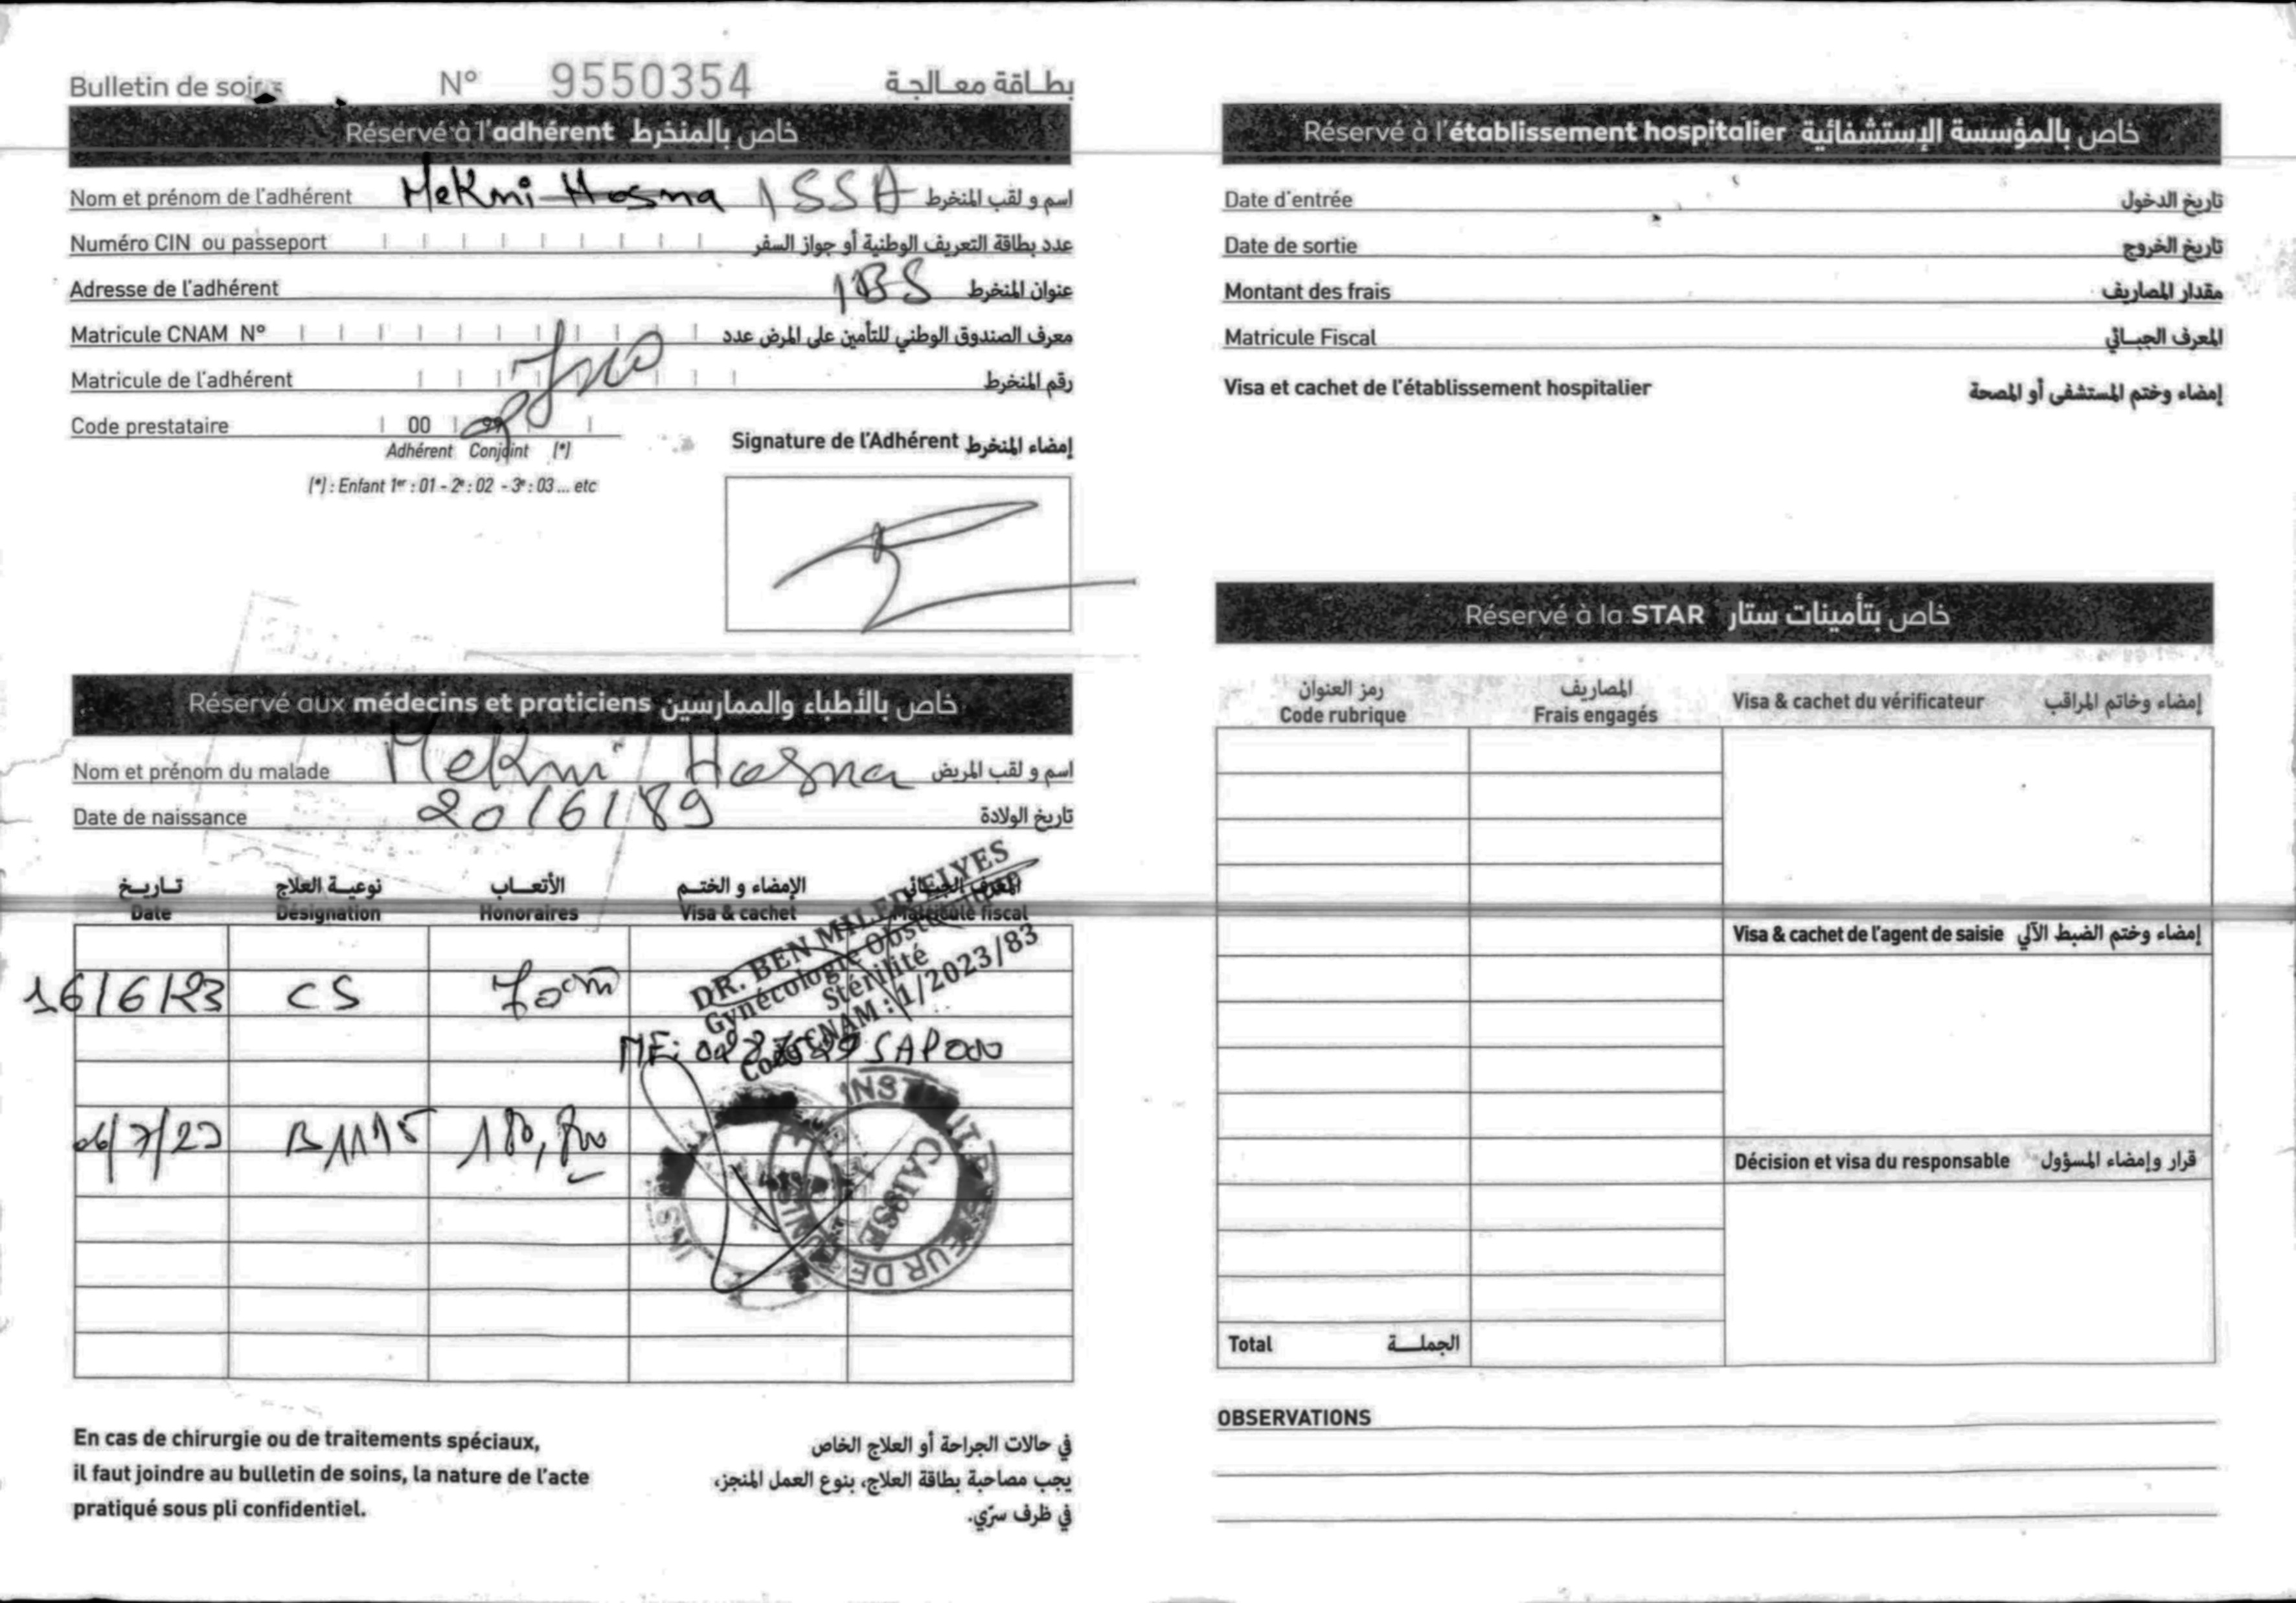 Bulletin de soins N° 9550354 بطاقة معالجة
Réservé à l'adhérent خاص بالمنخرط
Nom et prénom de l'adhérent Mekni Hosna ISSA اسم و لقب المنخرط
Numéro CIN ou passeport عدد بطاقة التعريف الوطنية أو جواز السفر
Adresse de l'adhérent عنوان المنخرط
Matricule CNAM N° معرف الصندوق الوطني للتأمين على المرض عدد
Matricule de l'adhérent رقم المنخرط
Code prestataire 00 99
Adhérent Conjoint (*)
(*) : Enfant 1er : 01 - 2e : 02 - 3e : 03 ... etc
Signature de l'Adhérent إمضاء المنخرط
Réservé aux médecins et praticiens خاص بالأطباء والممارسين
Nom et prénom du malade Mekni Hosna اسم و لقب المريض
Date de naissance 20/6/89 تاريخ الولادة
تاريخ نوعية العلاج الأتعاب الإمضاء و الختم المعرف الجبائي
Date Désignation Honoraires Visa & cachet Matricule fiscal
DR. BEN MILED ELYES
Gynécologie Obstétrique
Stérilité
Code CNAM : 1/2023/83
16/6/23 CS
06/7/23 B1115 180,800
INSTITUT PASTEUR DE TUNIS
CAISSE
En cas de chirurgie ou de traitements spéciaux,
il faut joindre au bulletin de soins, la nature de l'acte
pratiqué sous pli confidentiel.
في حالات الجراحة أو العلاج الخاص
يجب مصاحبة بطاقة العلاج، بنوع العمل المنجز،
في ظرف سرّي.
Réservé à l'établissement hospitalier خاص بالمؤسسة الإستشفائية
Date d'entrée تاريخ الدخول
Date de sortie تاريخ الخروج
Montant des frais مقدار المصاريف
Matricule Fiscal المعرف الجبائي
Visa et cachet de l'établissement hospitalier إمضاء وختم المستشفى أو المصحة
Réservé à la STAR خاص بتأمينات ستار
رمز العنوان المصاريف
Code rubrique Frais engagés Visa & cachet du vérificateur إمضاء وخاتم المراقب
Visa & cachet de l'agent de saisie إمضاء وختم الضبط الآلي
Décision et visa du responsable قرار وإمضاء المسؤول
Total الجملة
OBSERVATIONS